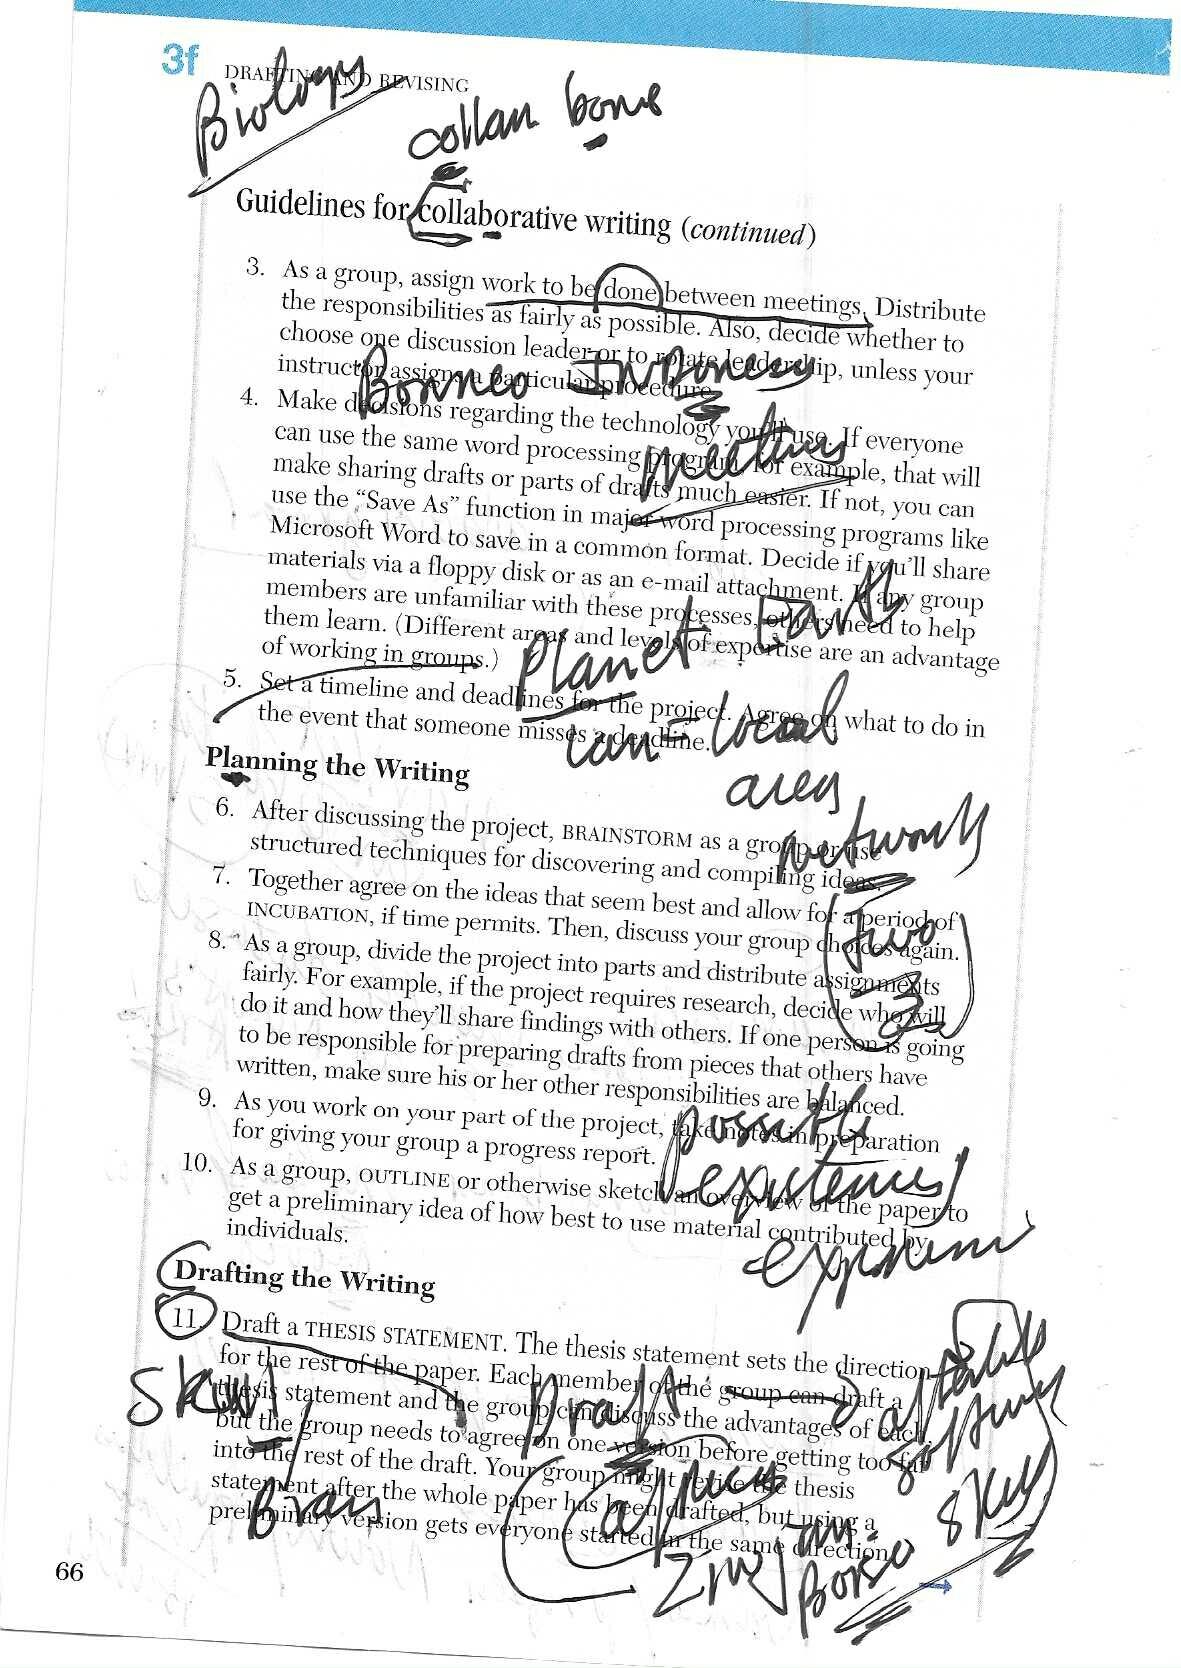 3f
DRAFTING AND REVISING
Biology
collar bone
Guidelines for collaborative writing (continued)
3. As a group, assign work to be done between meetings. Distribute
the responsibilities as fairly as possible. Also, decide whether to
choose one discussion leader or to rotate leadership, unless your
instructor assigns a particular procedure.
Borneo
4. Make decisions regarding the technology you'll use. If everyone
can use the same word processing program, for example, that will
make sharing drafts or parts of drafts much easier. If not, you can
use the "Save As" function in major word processing programs like
Microsoft Word to save in a common format. Decide if you'll share
materials via a floppy disk or as an e-mail attachment. If any group
members are unfamiliar with these processes, others need to help
them learn. (Different areas and levels of expertise are an advantage
of working in groups.)
Planet Earth
5. Set a timeline and deadlines for the project. Agree on what to do in
the event that someone misses a deadline.
Lan = local
area
network
Planning the Writing
6. After discussing the project, BRAINSTORM as a group or use
structured techniques for discovering and compiling ideas.
7. Together agree on the ideas that seem best and allow for a period of
INCUBATION, if time permits. Then, discuss your group choices again.
two
8. As a group, divide the project into parts and distribute assignments
fairly. For example, if the project requires research, decide who will
do it and how they'll share findings with others. If one person is going
to be responsible for preparing drafts from pieces that others have
written, make sure his or her other responsibilities are balanced.
9. As you work on your part of the project, take notes in preparation
for giving your group a progress report.
possible
10. As a group, OUTLINE or otherwise sketch an overview of the paper to
get a preliminary idea of how best to use material contributed by
individuals.
Drafting the Writing
11. Draft a THESIS STATEMENT. The thesis statement sets the direction
for the rest of the paper. Each member of the group can draft a
thesis statement and the group can discuss the advantages of each,
but the group needs to agree on one version before getting too far
into the rest of the draft. Your group might revise the thesis
statement after the whole paper has been drafted, but using a
preliminary version gets everyone started in the same direction.
Draft
Skull
Brain
skull
66